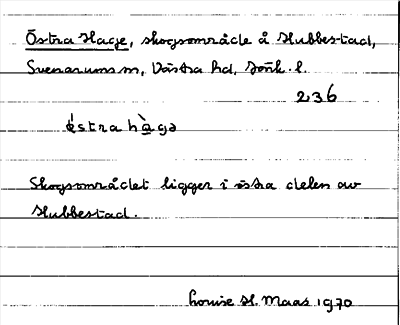 Östra Hage, skogsområde å Hubbestad,
Svenarums sn, Västra hd, Jönk. l.
236
östra hàgə
Skogsområdet ligger i östra delen av
Hubbestad.
Louise H. Maas 1970